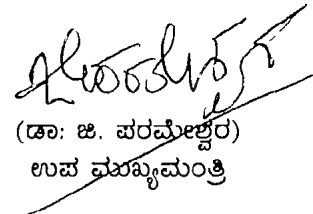 (ಡಾ: ಜಿ. ಪರಮೇಶ್ವರ)
ಉಪ ಮುಖ್ಯಮಂತ್ರಿ